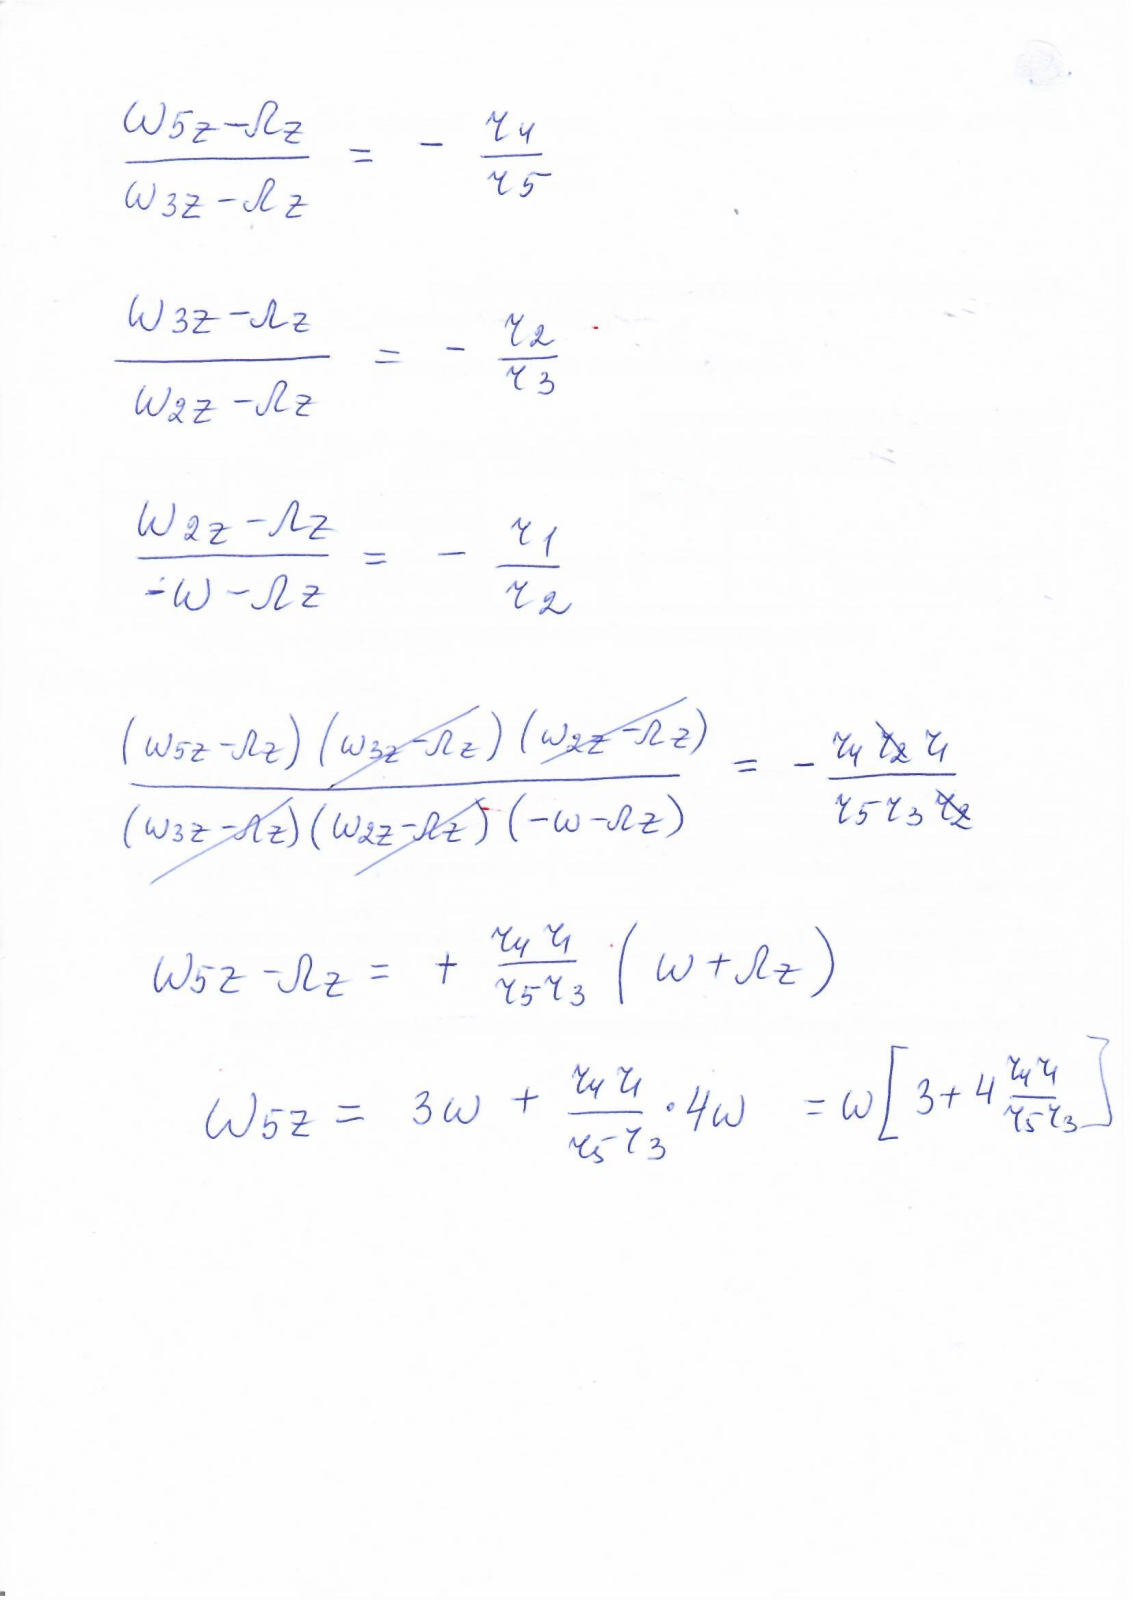 (ω5z − Ωz)/(ω3z − Ωz) = − r4/r5
(ω3z − Ωz)/(ω2z − Ωz) = − r2/r3
(ω2z − Ωz)/(−ω − Ωz) = − r1/r2
(ω5z − Ωz)(ω3z − Ωz)(ω2z − Ωz)/(ω3z − Ωz)(ω2z − Ωz)(−ω − Ωz) = − r4 r2 r1/r5 r3 r2
ω5z − Ωz = + r4 r1/r5 r3 (ω + Ωz)
ω5z = 3ω + r4 r1/r5 r3 · 4ω = ω[3 + 4 r4 r1/r5 r3]